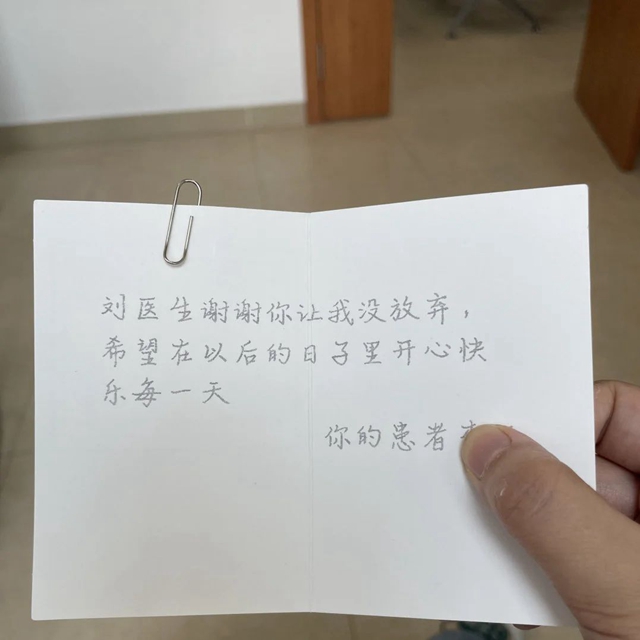 刘医生谢谢你让我没放弃，
希望在以后的日子里开心快
乐每一天
你的患者